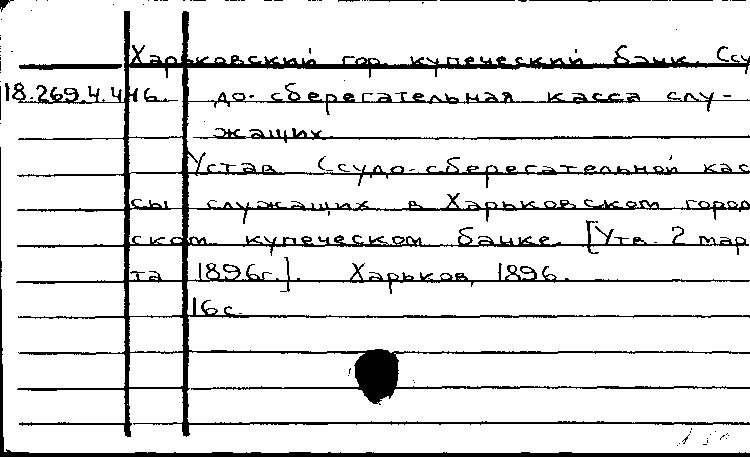 Харьковский гор. купеческий банк. Ссу
18.269.4.446. до-сберегательная касса слу-
жащих.
Устав Ссудо-сберегательной кас
сы служащих в Харьковском город
ском купеческом банке. [Утв. 2 мар
та 1896г.]. Харьков, 1896.
16с.